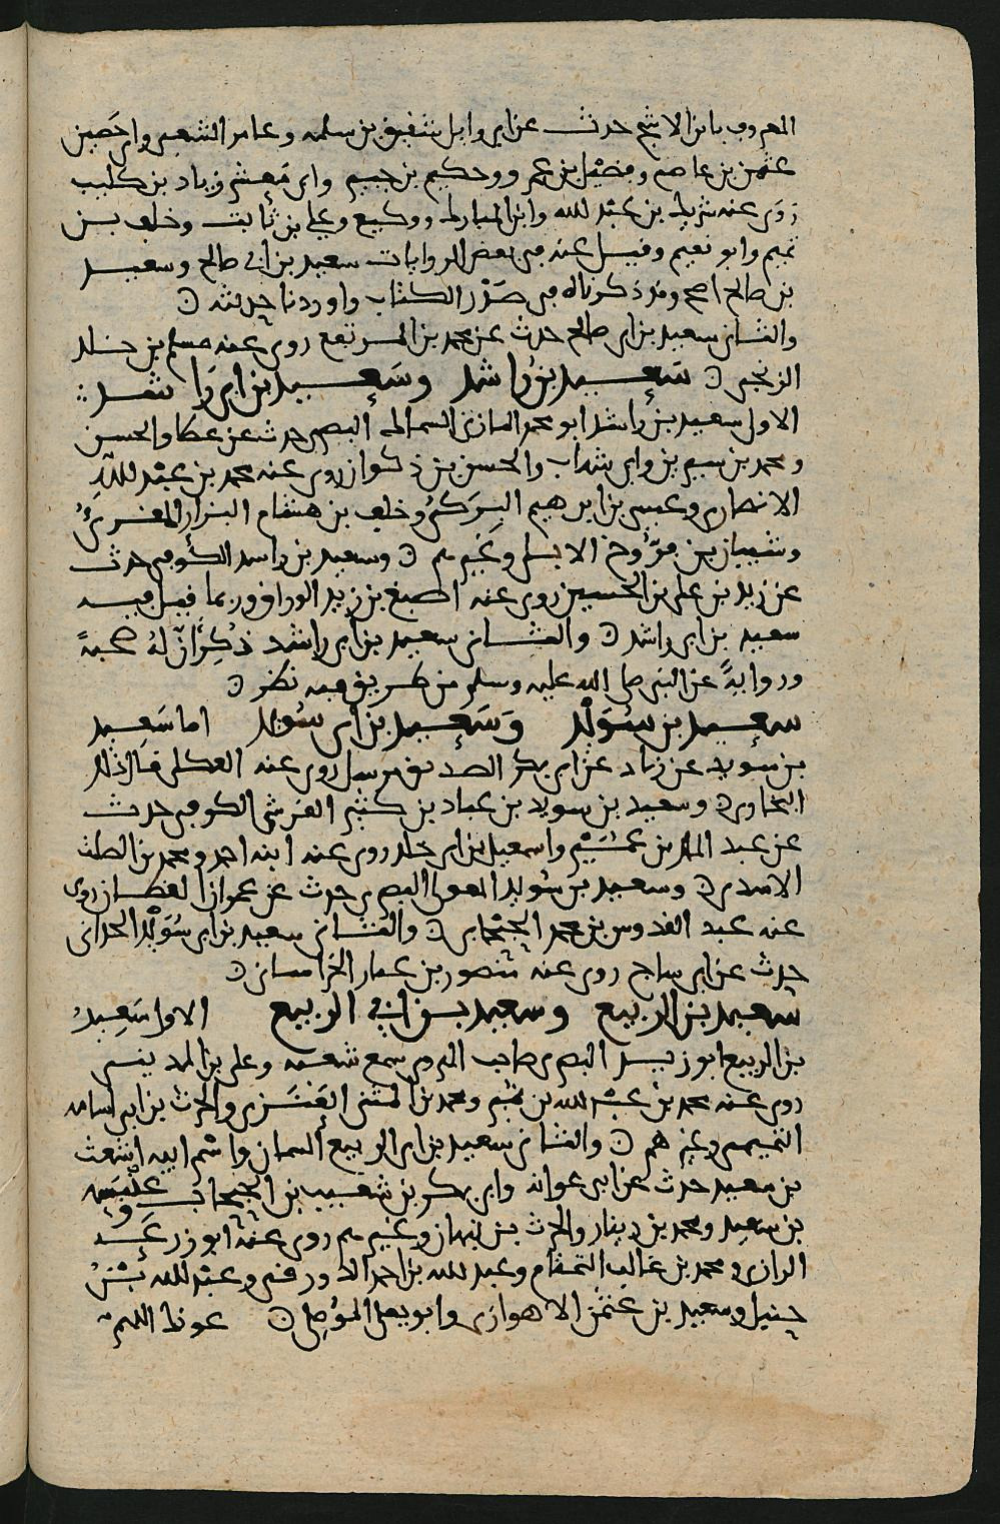 المعروف بابن الاشج حدث عن ابي وايل شقيق بن سلمه وعامر الشعبي وابي حَصين
عثمن بن عاصم وفضيل بن عمرو وحكيم بن جبير وابي مَعشر زياد بن كليب
رَوَى عنه شريك بن عبد الله وابن المبارك ووكيع وعلي بن ثابت وخلف بن
تميم وابو نعيم وقيل عنه في بعض الروايات سعيد بن ابي صالح وسعيد
بن صالح اصح وقد ذكرناه في صَدْر الكتاب واوردنا حديثه
والثاني سعيد بن ابي صالح حدث عن محمد بن المرتفع روى عنه مسلم بن خلد
الزنجي سَعيد بن رَاشد وسَعيد بن ابي رَا شد
الاول سعيد بن راشد ابو محمد المازني السماك البصري حدث عن عطا والحسن
ومحمد بن سيرين وابن شهاب والحسن بن ذكوان روى عنه محمد بن عبْد الله
الانصاري وعيسى بن ابرهيم البِرَكيُّ وخلف بن هشام البزار المقرئُ
وشيبان بن فرّوخ الابلي وغيرهم وسعيد بن راشد الكوفي حدث
عن زيد بن علي بن الحسين روى عنه اصبغ بن زيد الوراق وربما قيل فيه
سعيد بن ابي راشد والثاني سعيد بن ابي راشد ذُكِرَ انّ لهُ صحبةً
وروايةً عن النبي صلى الله عليه وسلم من طريق فيه نظر
سعيد بن سُوَيْد وَسَعِيد بن ابي سُوَيد اما سَعِيد
بن سويد عن زياد عن ابي بكر الصديق مرسل روى عنه العكلي قال ذلك
البخاري وسعيد بن سويد بن عباد بن كثير القرشي الكوفي حدث
عن عبد الملك بن عُمَيْر واسمعيل بن ابي خلد روى عنه ابنه احمد ومحمد بن الصلت
الاسدي وسعيد بن سُويد المعولي البصري حدث عن عمران القطان روى
عنه عبد القدوس بن محمد الحَبْحابي والثاني سعيد بن ابي سُوَيْد الحراني
حدث عن ابي ساج روى عنه منصور بن عمار الخراساني
سعيد بن الربيع وسعيد بن ابي الربيع الاول سَعِيدُ
بن الربيع ابو زيد البصري صاحب الهروي سمع شعبه وعلي بن المديني
روى عنه محمد بن عبْد الله بن نمير ومحمد بن المثنى العَنَزي والحرث بن ابي اسامه
التميمي وغيرهم والثاني سعيد بن ابي الربيع السمان واسْم ابيه اشعث
بن سعيد حدث عن ابي عوانه وابي بكر بن شعيب بن الحبحاب وعَنْبَسَه
بن سعيد ومحمد بن دينار والحرث بن نبهان وغيرهم روى عنه ابو زرعَه
الرازي ومحمد بن غالب التمتام وعبد الله بن احمد الدورقي وعبْد الله بْنُ
حنبل وسعيد بن عثمن الاهوازي وابو يعلى المَوْصِلي عونك اللهم